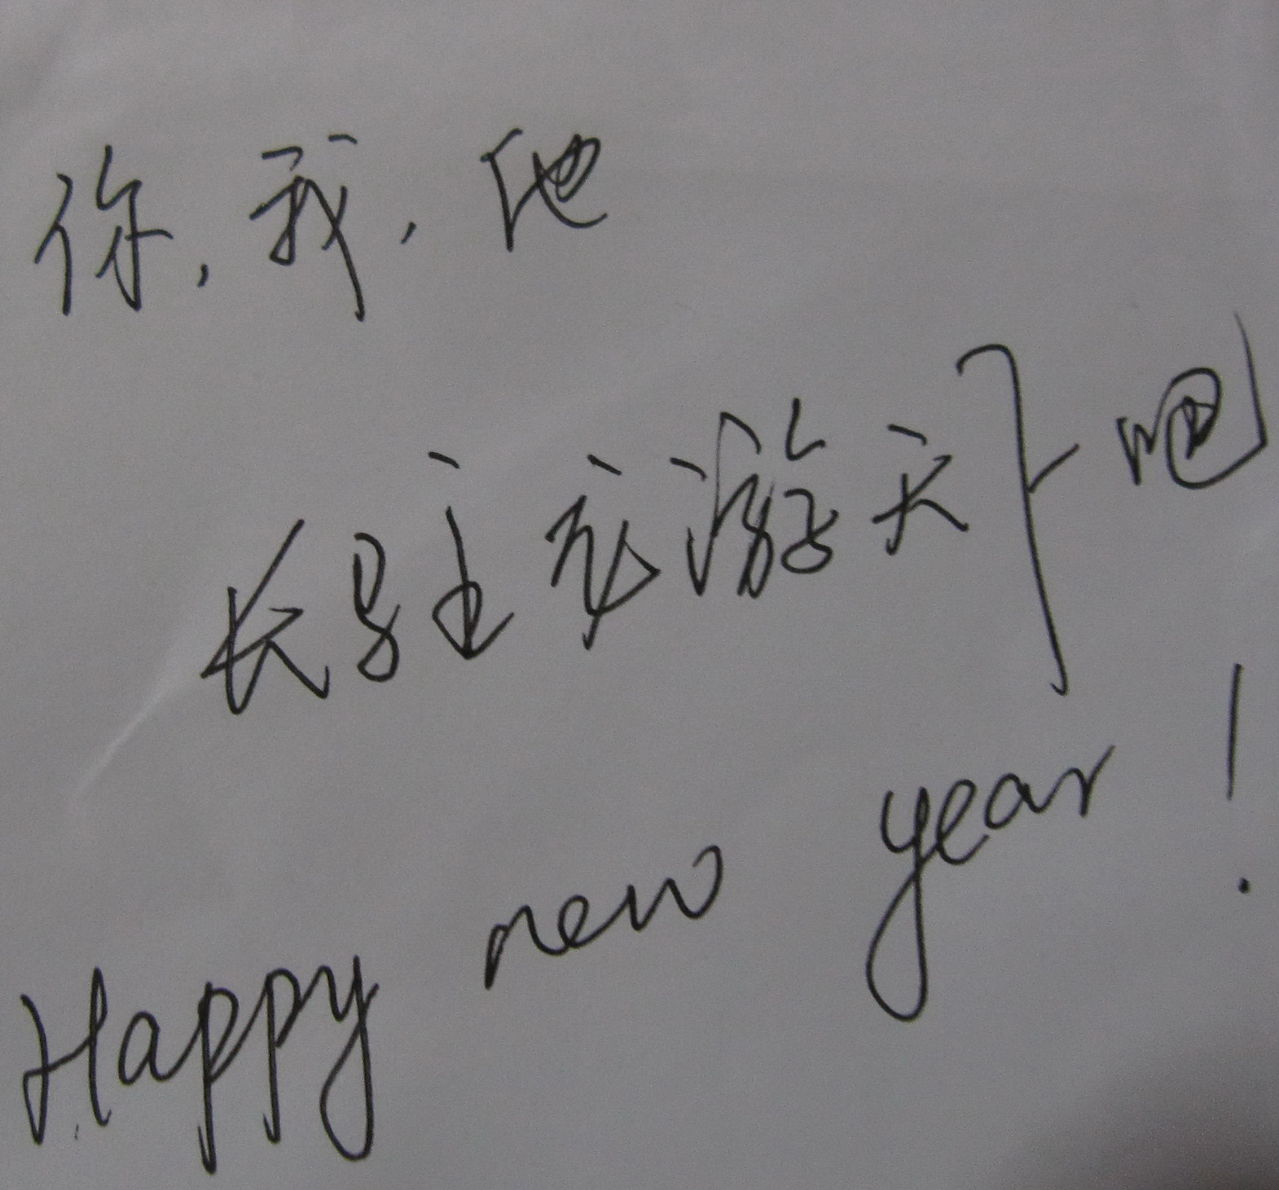 你,我,他
长驻玄游天下吧
Happy new year!